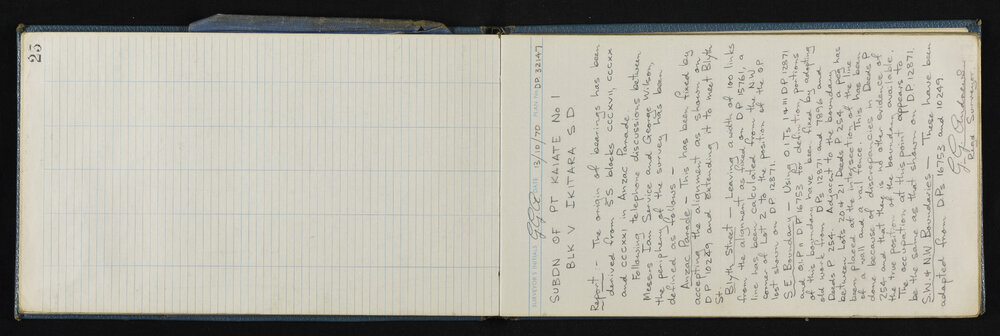 25
SURVEYOR'S INITIALS GGA DATE 13/10/70 PLAN No. DP 32147
SUBDN OF PT KAIATE No 1
BLK V IKITARA SD
Report - The origin of bearings has been
derived from SS blocks CCCXVII, CCCXX
and CCCXXI in Anzac Parade
Following telephone discussions between
Messrs Ian Service and George Wilson,
the periphery of the survey has been
defined as follows:
Anzac Parade - This has been fixed by
accepting the alignment as shown on
DP 10249 and extending it to meet Blyth
St
Blyth Street - Leaving a width of 100 links
from the alignment as fixed on DP 15761, a
line has been calculated from the NW
corner of Lot 2 to the position of the OP
lost shown on DP 12871.
SE Boundary - Using O.ITs I & III DP 12871
and OIP II DP 16753 for definition, portions
of this boundary have been fixed by adopting
old work from DPs 12871 and 7896 and
Deeds P 254. Adjacent to the boundary
between Lots 20 & 21 Deeds P 254, a peg has
been placed at the intersection of the line
of a wall and a rail fence. This has been
done because of discrepancies in Deeds P
254 and that there is no other evidence of
the true position of the boundary available.
The occupation at this point appears to
be the same as that shown on DP 12871.
SW & NW Boundaries - These have been
adapted from DPs 16753 and 10249
G.G. Andrews
Regd Surveyor